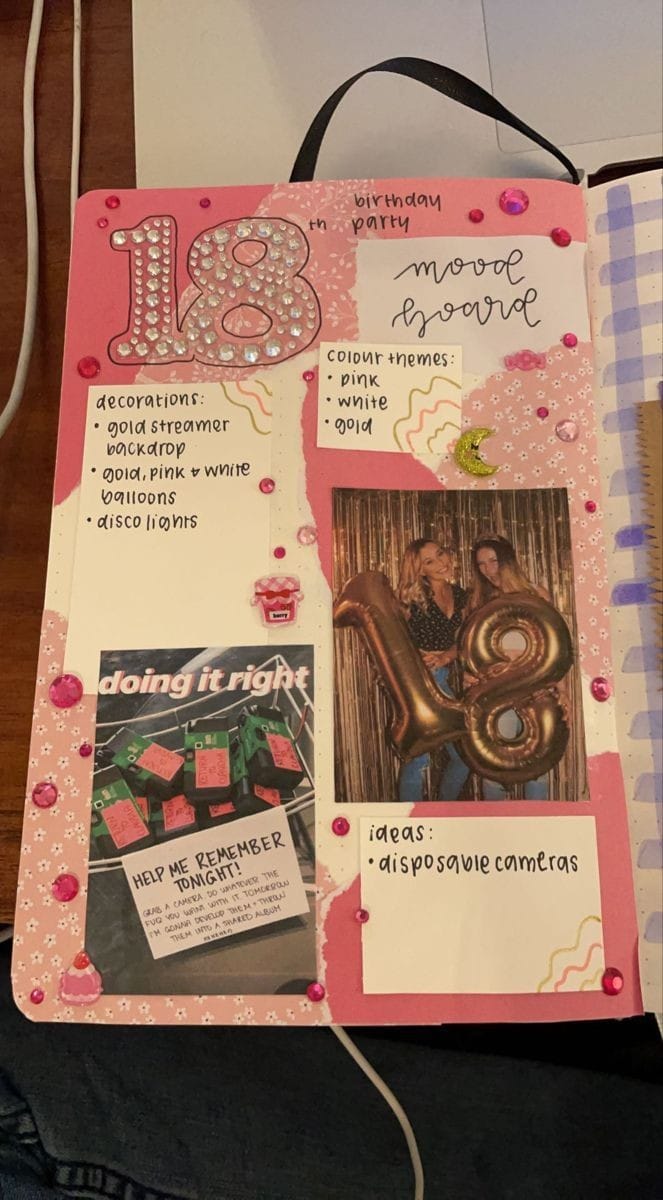 18
th birthday
party
mood
board
colour themes:
• pink
• white
• gold
decorations:
• gold streamer
backdrop
• gold, pink & white
balloons
• disco lights
18
berry
doing it right
HELP ME REMEMBER
TONIGHT!
GRAB A CAMERA. DO WHATEVER THE
FUQ YOU WANT WITH IT TOMORROW
I'M GONNA DEVELOP THEM + THROW
THEM INTO A SHARED ALBUM
ideas:
• disposable cameras